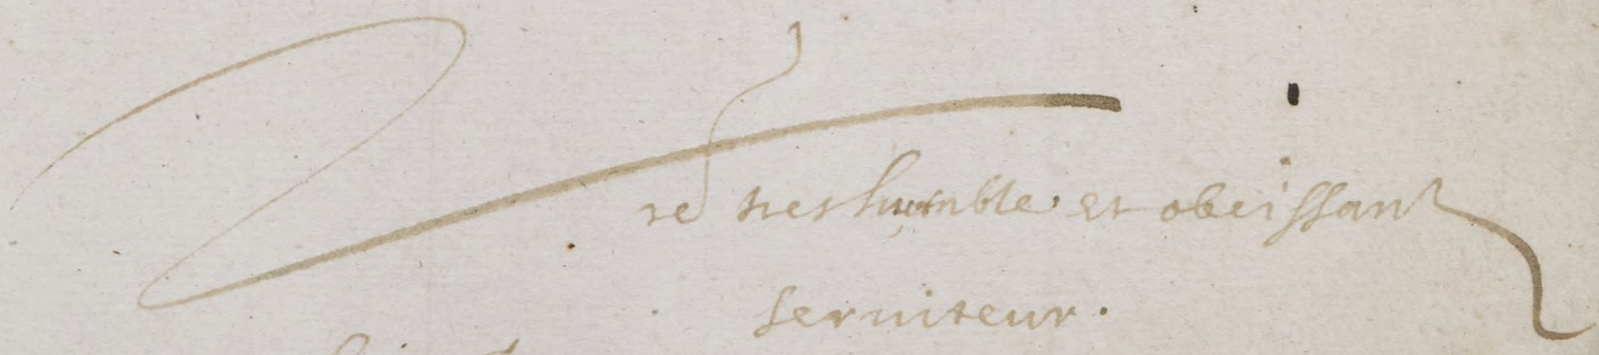 re tres humble et obeissant
seruiteur.